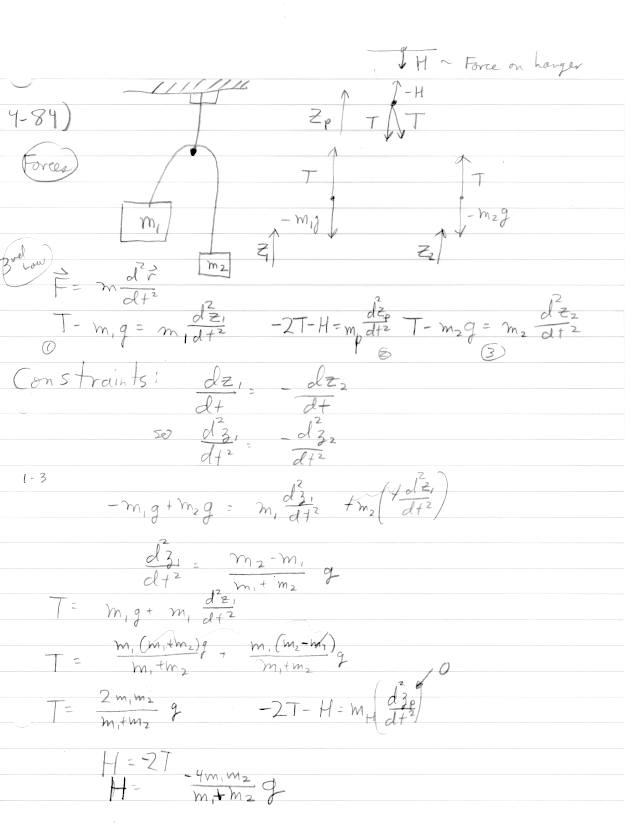 H ~ Force on hanger
-H
4-84)
Z_p T T
Forces
T T
m_1 -m_1g -m_2g
Z_1 Z_2
m_2
3rd Law
F⃗ = m d²r⃗/dt²
T - m_1g = m_1 d²z_1/dt² -2T-H = m_p d²z_p/dt² T - m_2g = m_2 d²z_2/dt²
① ② ③
Constraints: dz_1/dt = - dz_2/dt
so d²z_1/dt² = - d²z_2/dt²
1-3
-m_1g + m_2g = m_1 d²z_1/dt² + m_2(+ d²z_1/dt²)
d²z_1/dt² = (m_2 - m_1)/(m_1 + m_2) g
T = m_1g + m_1 d²z_1/dt²
T = m_1(m_1+m_2)g/(m_1+m_2) + m_1(m_2-m_1)/(m_1+m_2) g
0
T = 2m_1m_2/(m_1+m_2) g -2T - H = m_H(d²z_p/dt²)
H = -2T
H = -4m_1m_2/(m_1+m_2) g